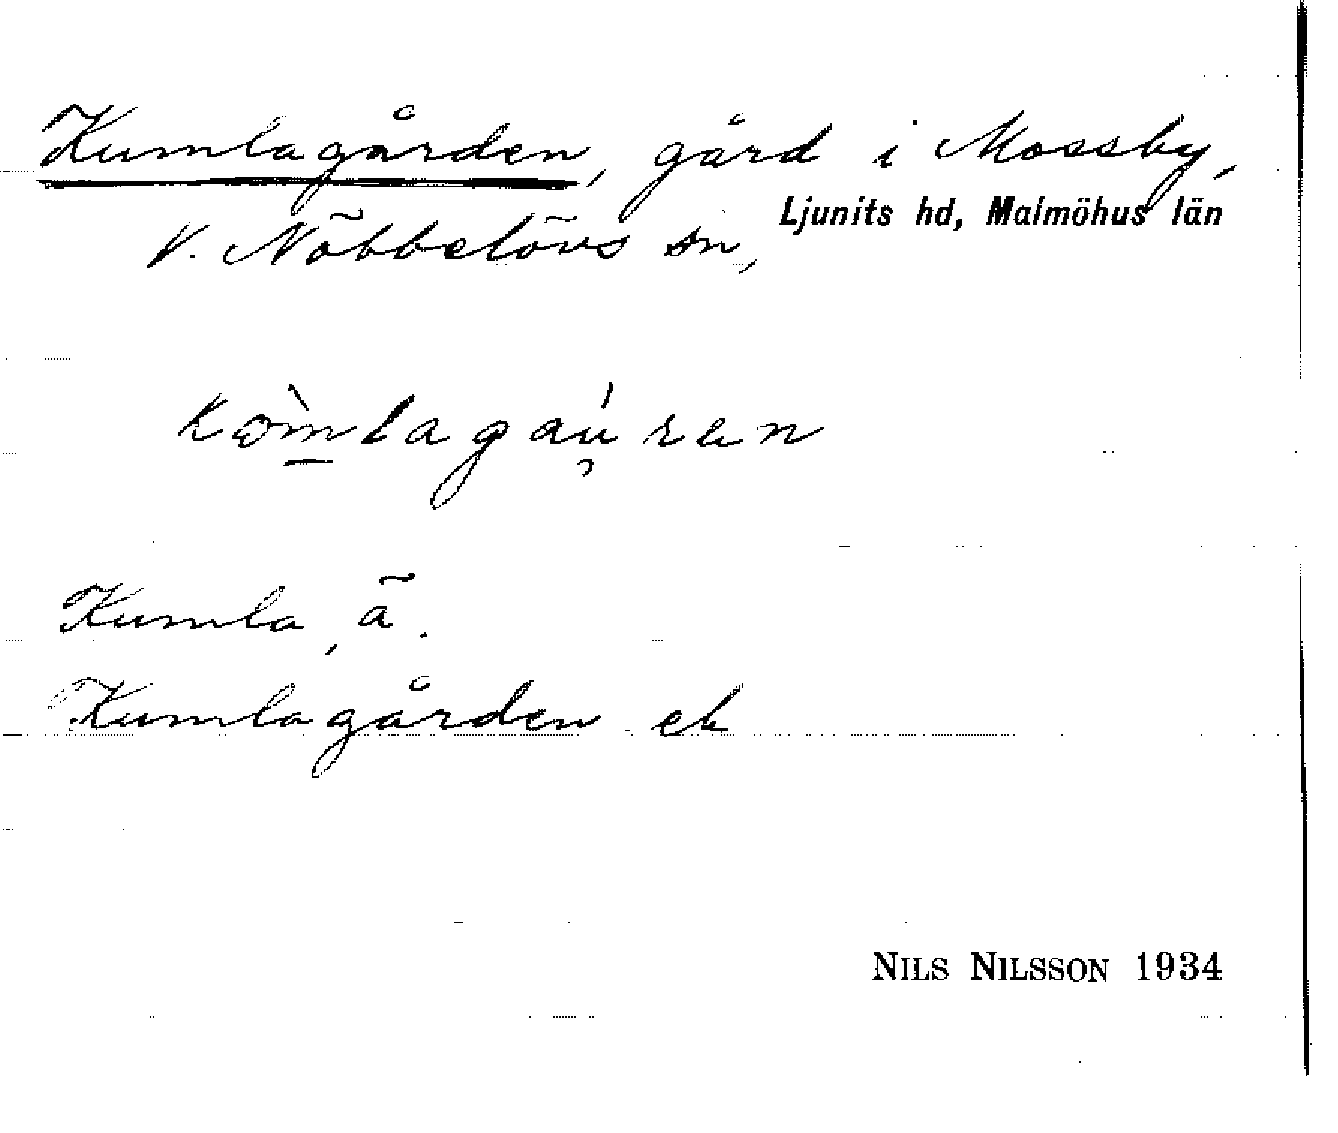 Kumlagården, gård i Mossby,
Ljunits hd, Malmöhus län
V. Nöbbelövs sn,
Kumla, ä.
Kumlagården ek
NILS NILSSON 1934